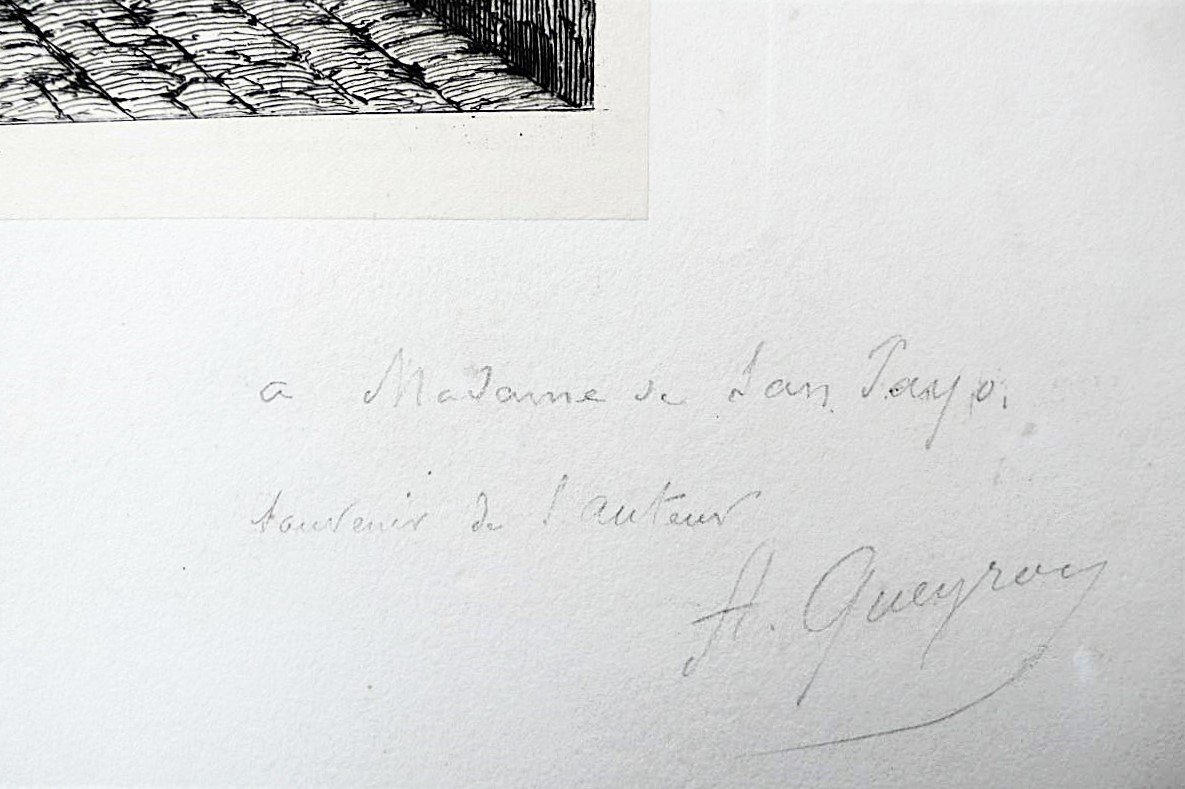 a Madame de San Payo.
souvenir de l'auteur
A. Queyroy